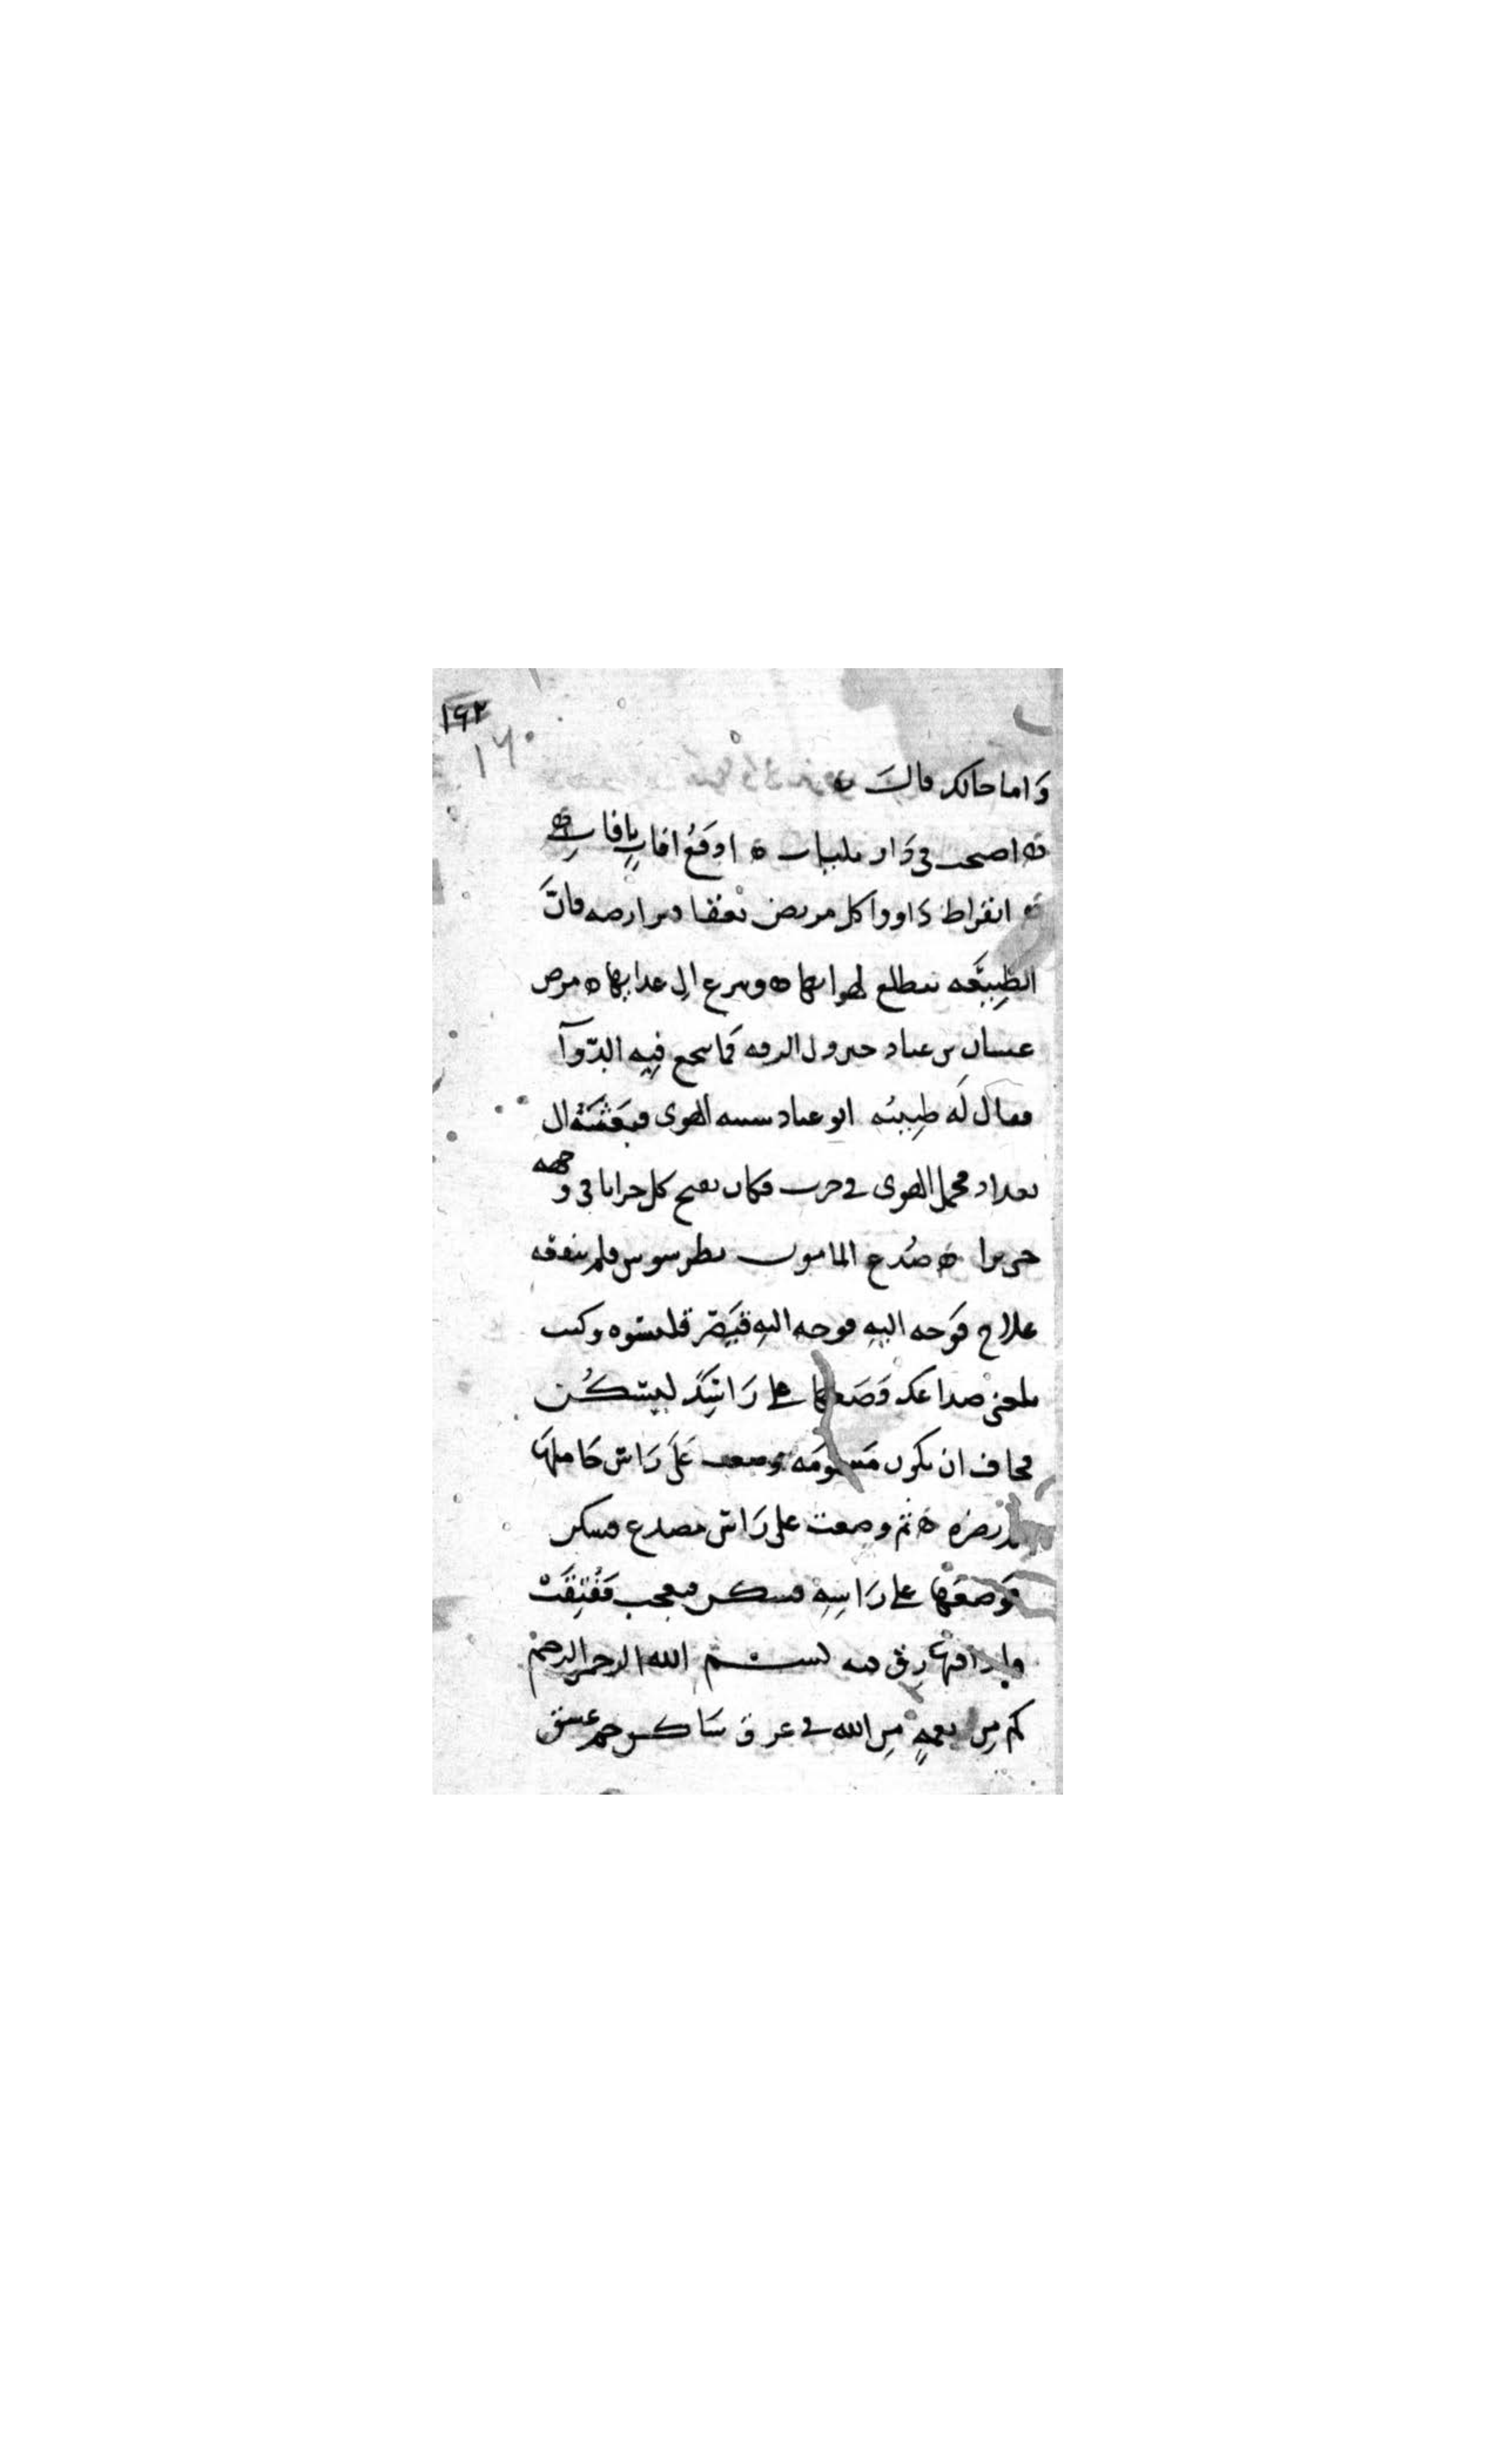 ١٦٢
١٦٠
واما حالك قالت
اصبحت في دار بليات ادفع افات بافات
ابقراط داووا كل مريض بعقاقير ارضه فان
الطبيعة تتطلع لهوائها وتنزع الى غذائها مرض
غسان بن عباد حين ولي الرقة فما نجع فيه الدوآ
فقال له طبيبه ابو عباد سببه الهوى فبعث الى
بغداد فحمل الهوى في جرب فكان يفتح كل جرابا في وجهه
جريرا صدع المامون بطرسوس فلم ينفعه
علاج فوجه اليه فوجه اليه قيصر قلنسوه وكتب
بلغني صداعك فضعها على راسك ليسكن
فخاف ان يكون مسمومه فوضعت على راس حاملها
فلم تضره ثم وضعت على راس مصدع فسكن
فوضعها على راسه فسكن فعجب ففتقت
فاذا فيها رق فيه بسم الله الرحمن الرحيم
كم من نعمة من الله في عرق ساكن حم عسق